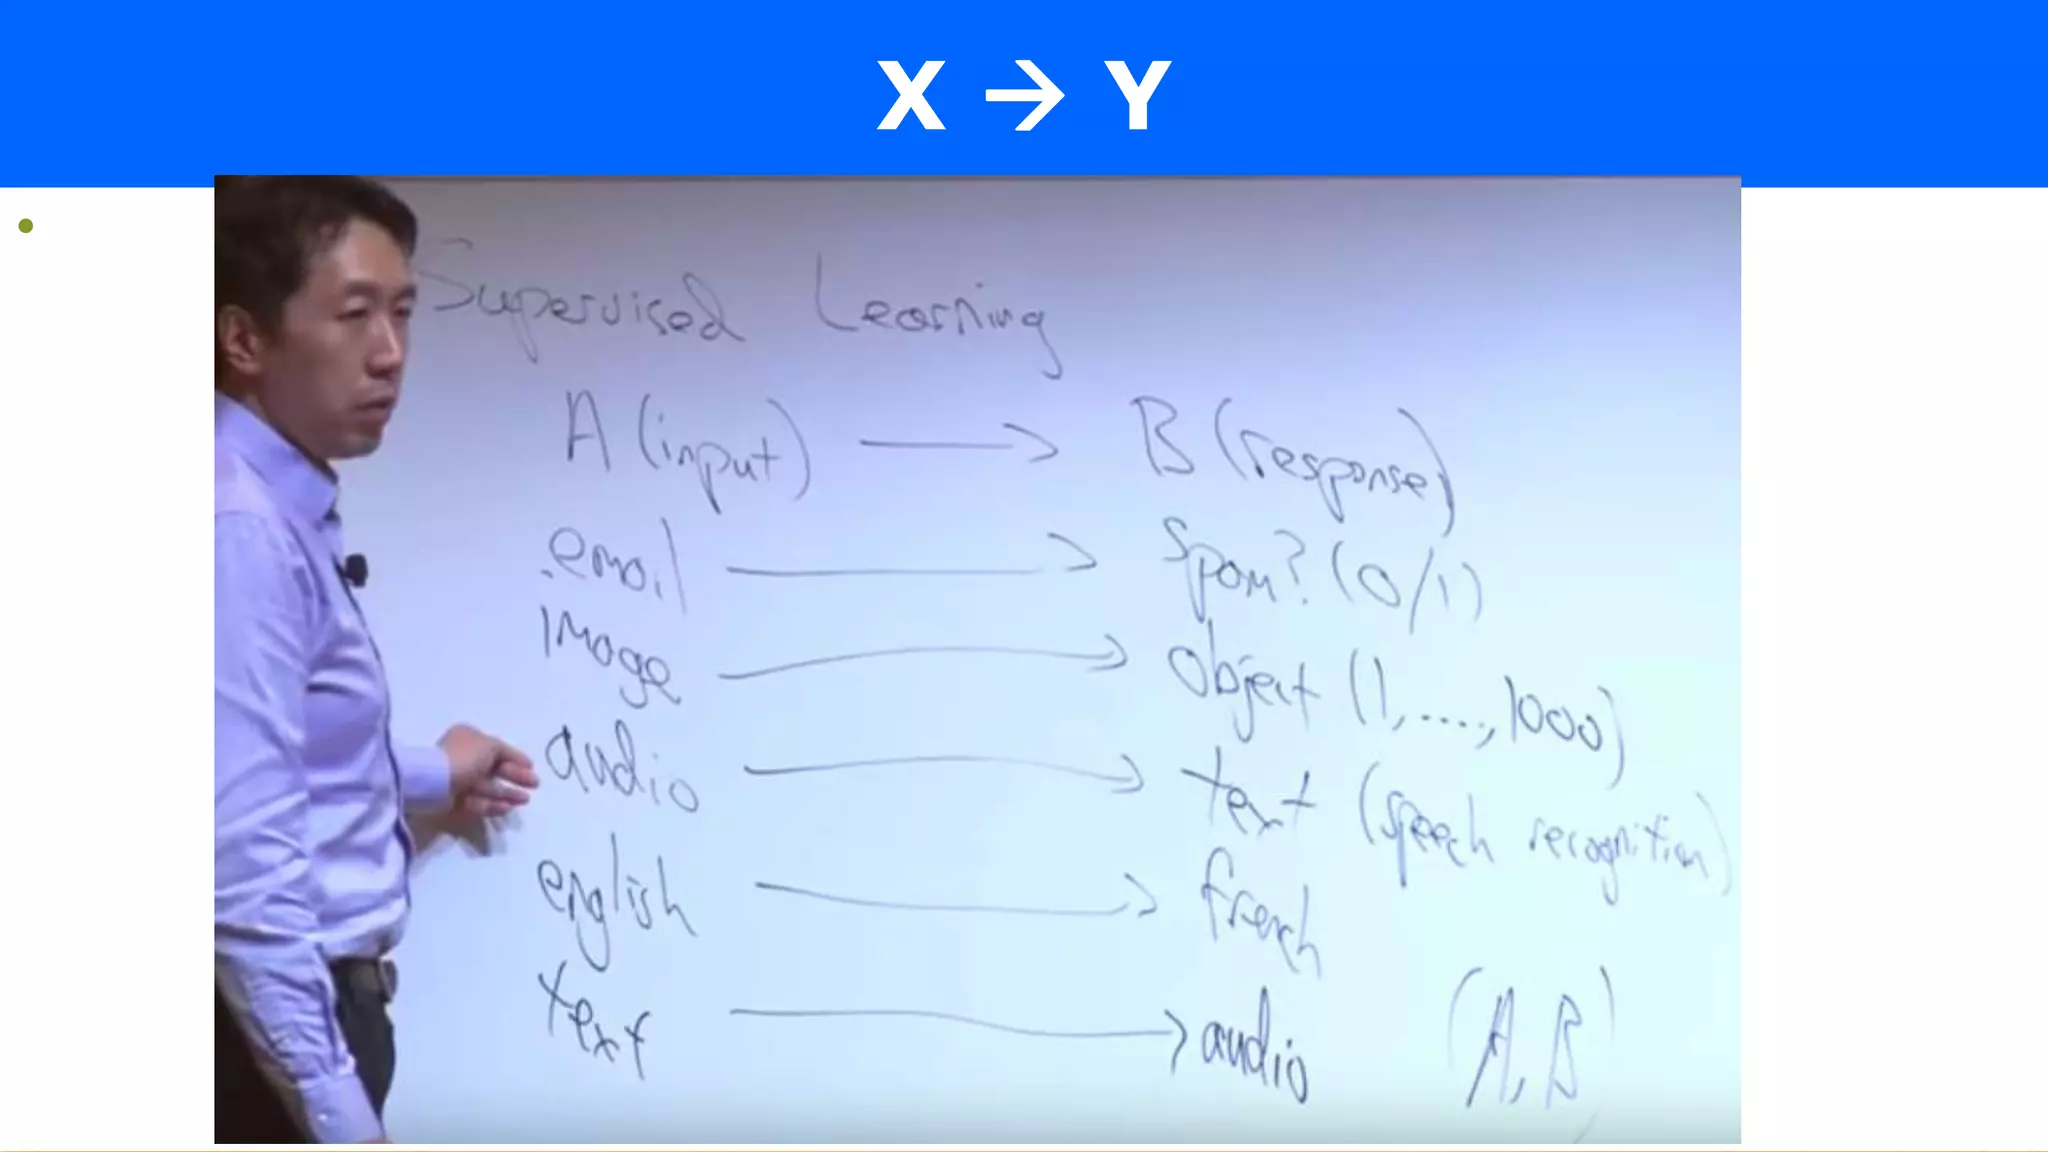 X → Y
Supervised Learning
A (input) → B (response)
email → spam? (0/1)
image → object (1, ...., 1000)
audio → text (speech recognition)
english → french
text → audio (A, B)